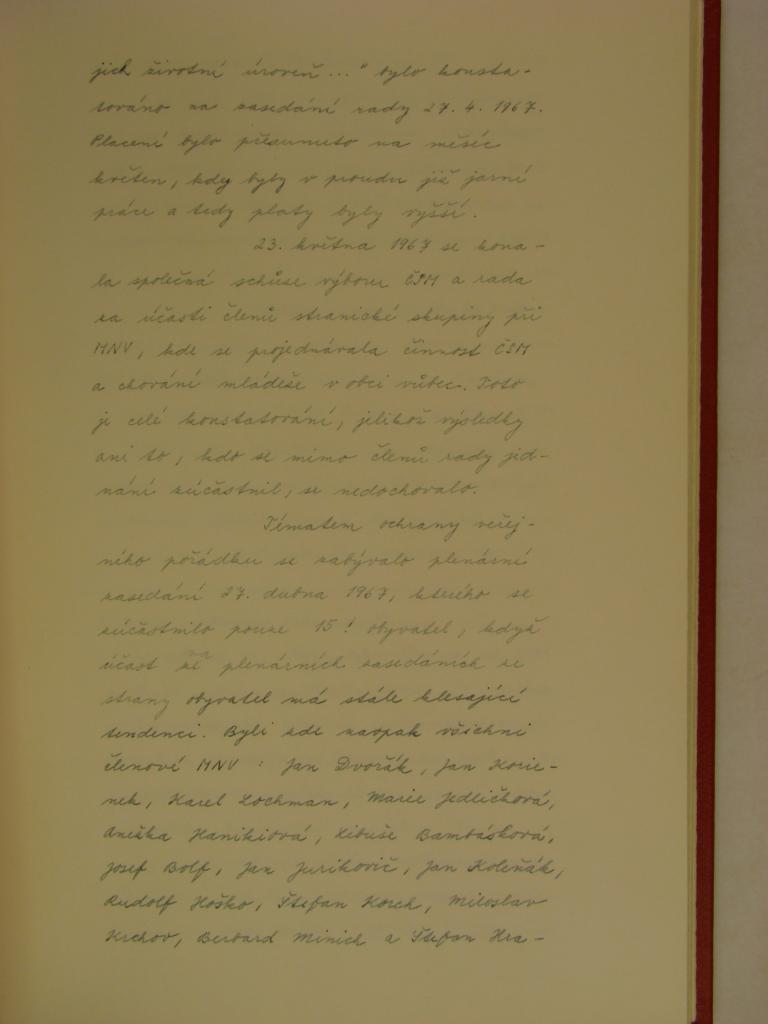 jich životní úroveň..." bylo konsta-
továno na zasedání rady 27. 4. 1967.
Placení bylo přesunuto na měsíc
květen, kdy byly v proudu již jarní
práce a tedy platy byly vyšší.
23. května 1967 se kona-
la společná schůze výboru ČSM a rada
za účasti členů stranické skupiny při
MNV, kde se projednávala činnost ČSM
a chování mládeže v obci vůbec. Toto
je celé konstatování, jelikož výsledky
ani to, kdo se mimo členů rady jed-
nání zúčastnil, se nedochovalo.
Tématem ochrany veřej-
ného pořádku se zabývalo plenární
zasedání 27. dubna 1967, kterého se
zúčastnilo pouze 15! obyvatel, když
účast na plenárních zasedáních ze
strany obyvatel má stále klesající
tendenci. Byli zde naopak všichni
členové MNV : Jan Dvořák, Jan Korie-
nek, Karel Lochman, Marie Jedličková,
Anežka Hanikiová, Libuše Bambásková,
Josef Bolf, Jan Jurikovič, Jan Koleňák,
Rudolf Hoško, Štefan Korch, Miloslav
Krchov, Berbard Minich a Štefan Hra-